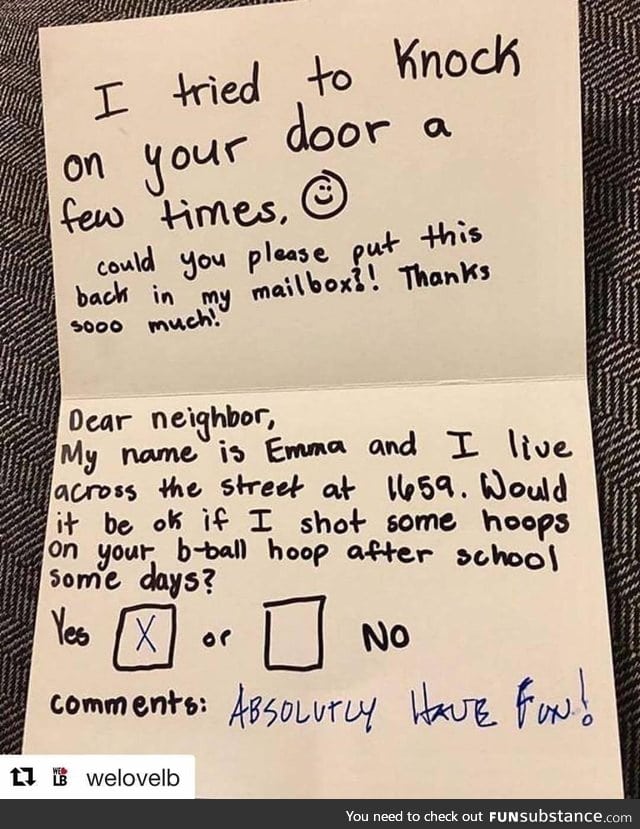 I tried to Knock
on your door a
few times.
could you please put this
back in my mailbox?! Thanks
sooo much!
Dear neighbor,
My name is Emma and I live
across the street at 1659. Would
it be ok if I shot some hoops
on your b-ball hoop after school
some days?
Yes X or NO
comments: ABSOLUTLY HAVE FUN!
WE LB welovelb
You need to check out FUNsubstance.com